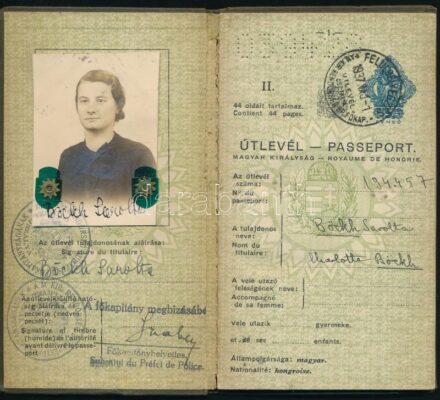 Böckh Sarolta
Az útlevél tulajdonosának aláírása:
Signature du titulaire:
Böckh Sarolta
A főkapitány megbízásából
Signature et timbre
(humide) de l'autorité
ayant délivré le passe-
port
Főkapitányhelyettes.
Substitut du Préfet de Police.
II.
44 oldalt tartalmaz.
Contient 44 pages.
1937
ÚTLEVÉL — PASSEPORT.
MAGYAR KIRÁLYSÁG — ROYAUME DE HONGRIE.
Az útlevél
száma:
N° du
passeport:
194457
A tulajdonos
neve:
Nom du
titulaire:
Böckh Sarolta
Charlotte Böckh
A vele utazó
feleségének neve:
Accompagné
de sa femme:
Vele utazik gyermeke.
et de ses enfants.
Állampolgársága: magyar.
Nationalité: hongroise.
darabanth